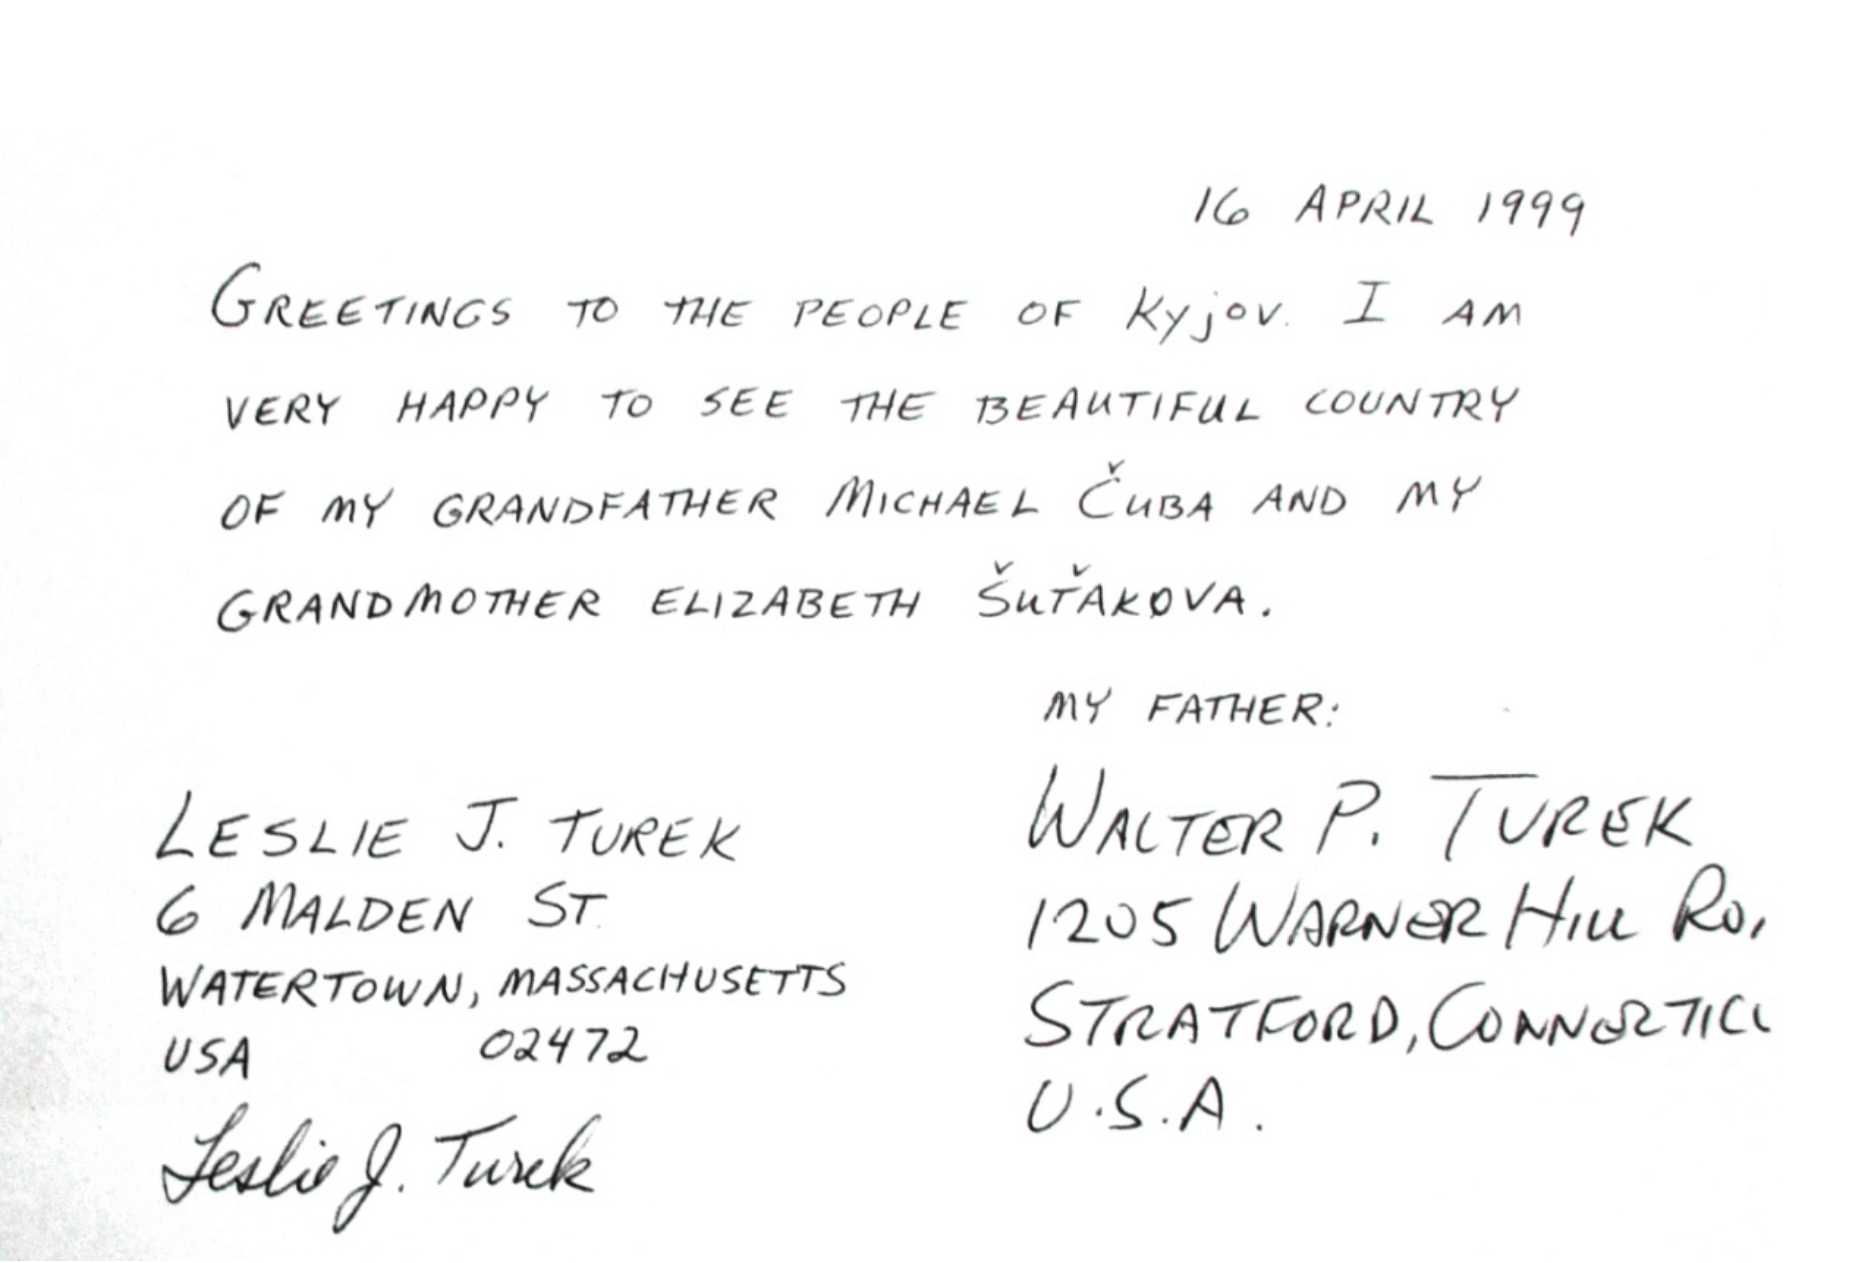 16 APRIL 1999
GREETINGS TO THE PEOPLE OF Kyjov. I AM
VERY HAPPY TO SEE THE BEAUTIFUL COUNTRY
OF MY GRANDFATHER MICHAEL ČUBA AND MY
GRANDMOTHER ELIZABETH ŠUŤAKOVA.
MY FATHER:
LESLIE J. TUREK
6 MALDEN ST.
WATERTOWN, MASSACHUSETTS
USA 02472
Leslie J. Turek
WALTER P. TUREK
1205 WARNER HILL RD,
STRATFORD, CONNECTICU
U.S.A.